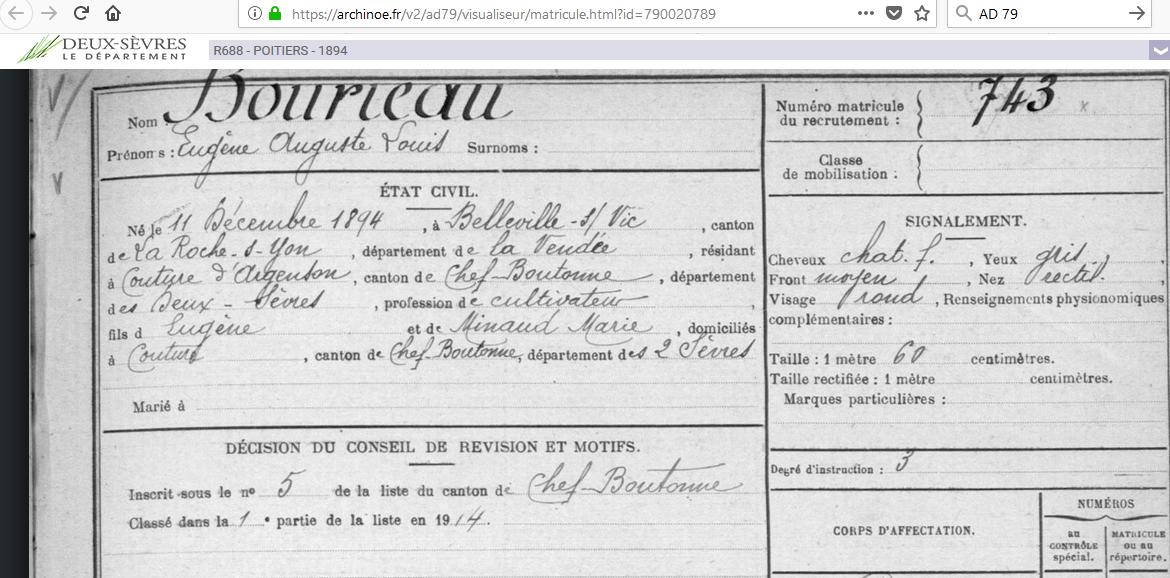 https://archinoe.fr/v2/ad79/visualiseur/matricule.html?id=790020789
AD 79
DEUX-SÈVRES
LE DÉPARTEMENT
R688 - POITIERS - 1894
Nom : Bourieau
Prénoms : Eugène Auguste Louis Surnoms :
ÉTAT CIVIL.
Né le 11 Décembre 1894, à Belleville-s/ Vie, canton
de La Roche-s-Yon, département de la Vendée, résidant
à Couture d'Argenson, canton de Chef-Boutonne, département
des Deux-Sèvres, profession de cultivateur,
fils d Eugène et de Minaud Marie, domiciliés
à Couture, canton de Chef-Boutonne, département des 2 Sèvres
Marié à
DÉCISION DU CONSEIL DE REVISION ET MOTIFS.
Inscrit sous le nº 5 de la liste du canton de Chef-Boutonne
Classé dans la 1e partie de la liste en 1914.
Numéro matricule
du recrutement : 743
Classe
de mobilisation :
SIGNALEMENT.
Cheveux chat. f., Yeux gris,
Front moyen, Nez rectil.
Visage rond, Renseignements physionomiques
complémentaires :
Taille : 1 mètre 60 centimètres.
Taille rectifiée : 1 mètre centimètres.
Marques particulières :
Degré d'instruction : 3
CORPS D'AFFECTATION.
NUMÉROS
au
CONTRÔLE
spécial.
MATRICULE
ou au
répertoire.